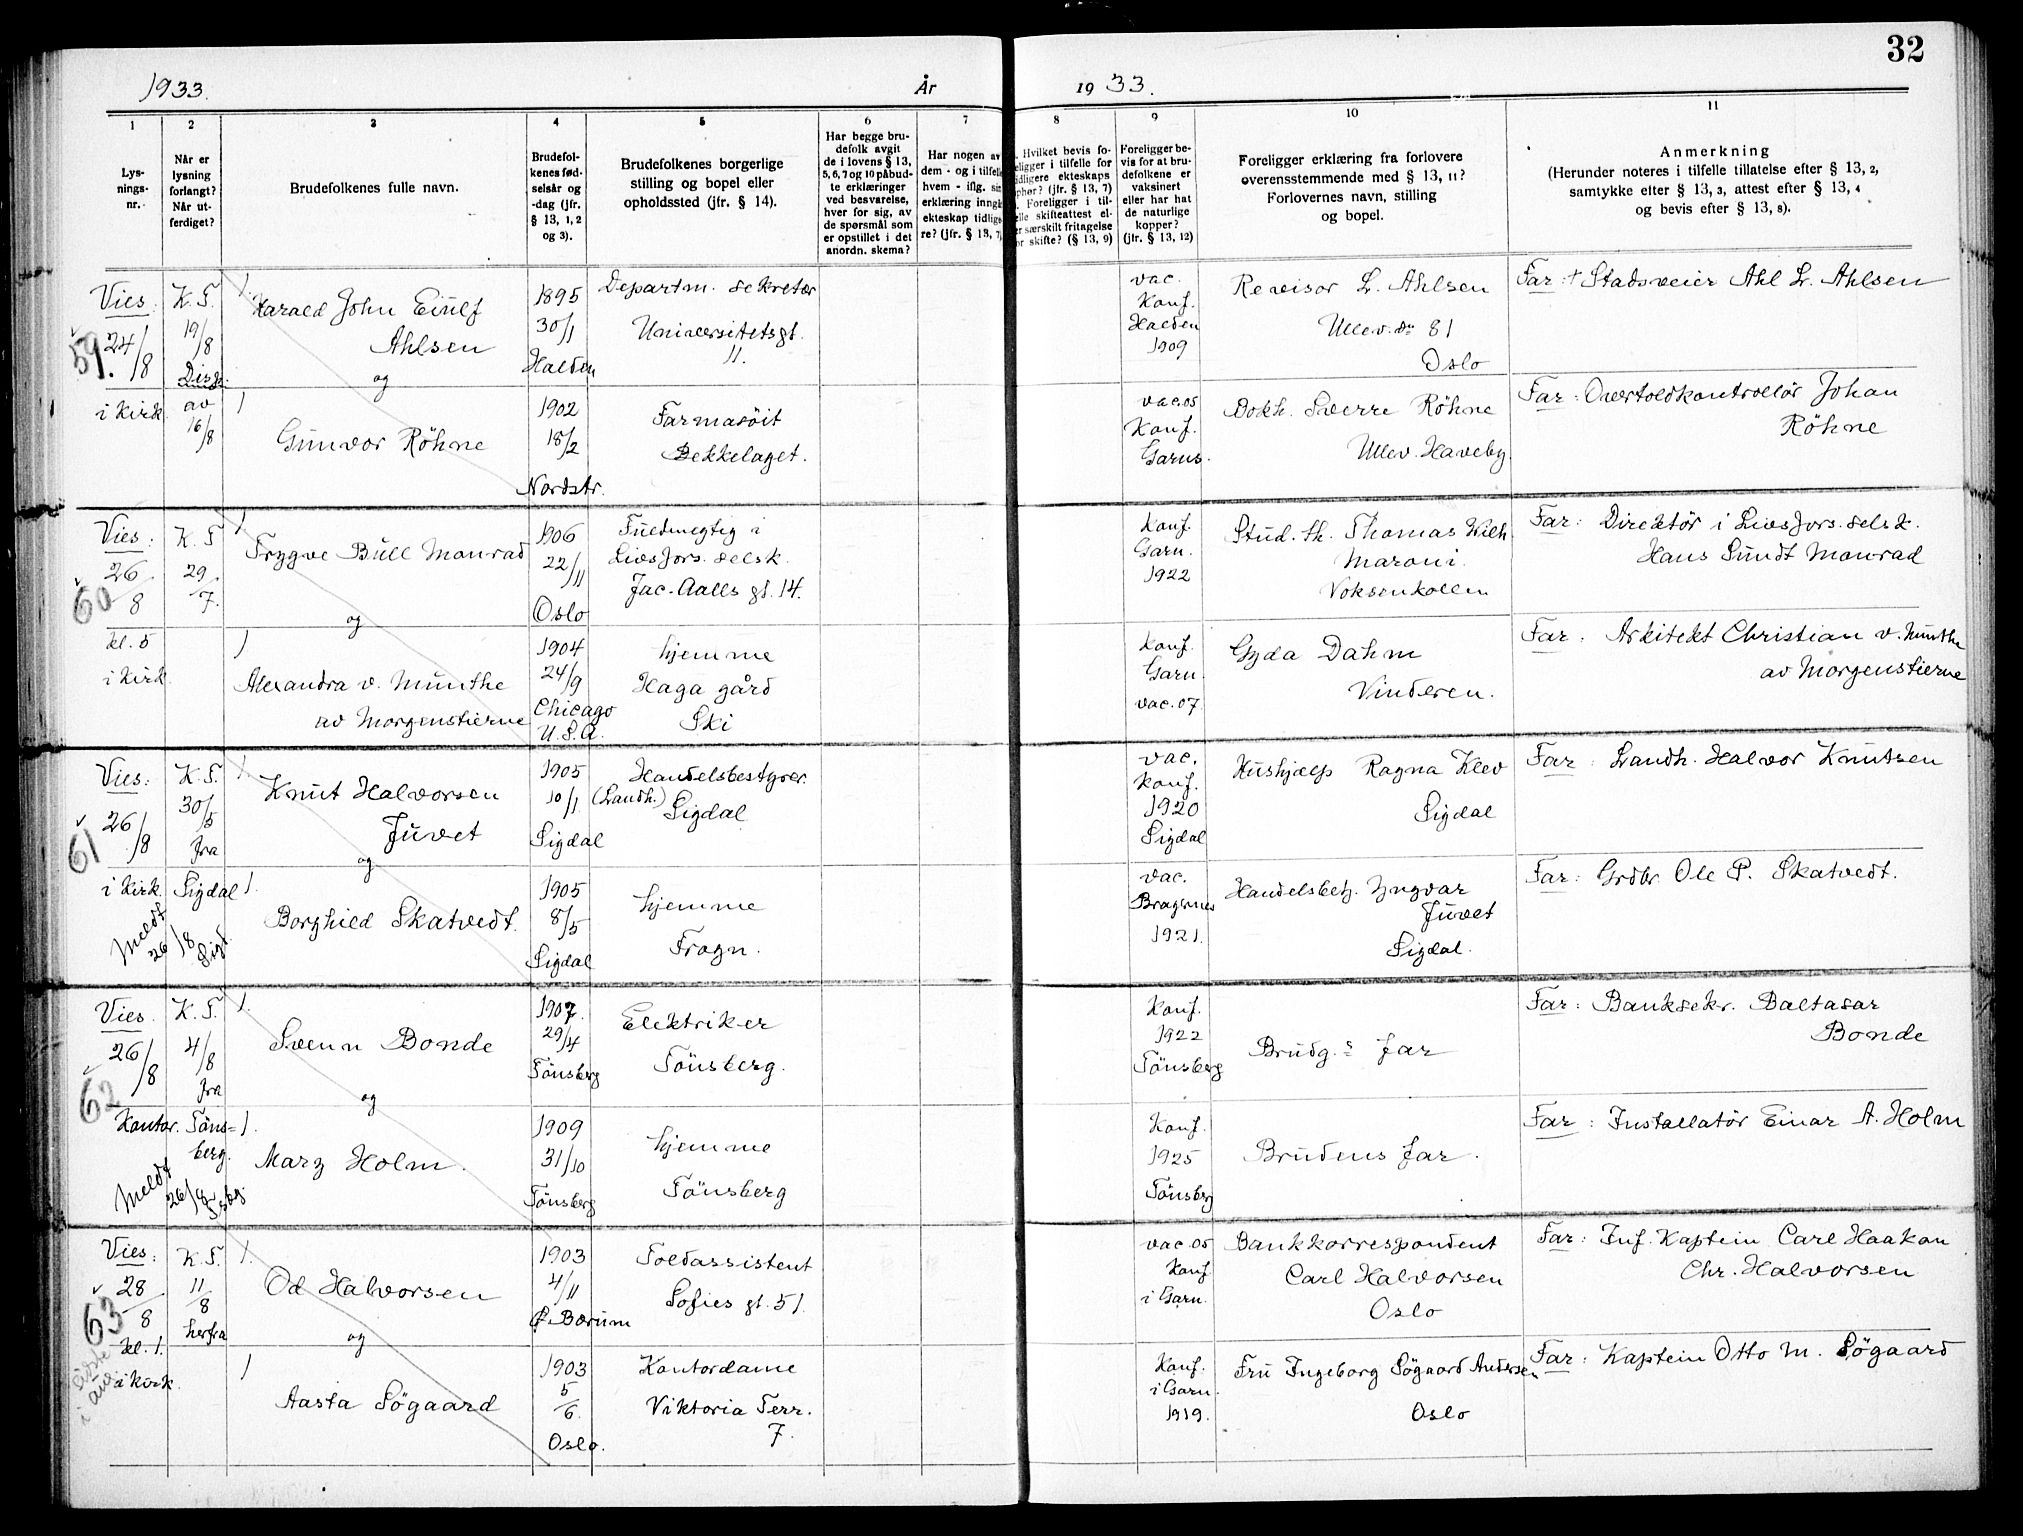 32
1933.
År
19 33.
1
2
3
4
5
6
7
8
9
10
11
Lys-
nings-
nr.
Når er
lysning
forlangt?
Når ut-
ferdiget?
Brudefolkenes fulle navn.
Brudefol-
kenes fød-
selsår og
-dag (jfr.
§ 13, 1, 2
og 3).
Brudefolkenes borgerlige
stilling og bopel eller
opholdssted (jfr. § 14).
Har begge bru-
defolk avgit
de i lovens § 13,
5, 6, 7 og 10 påbud-
te erklæringer
ved besvarelse,
hver for sig, av
de spørsmål som
er opstillet i det
anordn. skema?
Har nogen av
dem - og i tilfelle
hvem - iflg. sin
erklæring inngå
ekteskap tidlige
re? (jfr. § 13, 7,
. Hvilket bevis fo-
eligger i tilfelle for
idligere ekteskaps
phør? (jfr. § 13, 7)
. Foreligger i til-
elle skifteattest el-
er særskilt fritagelse
or skifte? (§ 13, 9)
Foreligger be-
vis for at bru-
defolkene er
vaksinert
eller har hat
de naturlige
kopper?
(jfr. § 13, 12)
Foreligger erklæring fra forlovere
overensstemmende med § 13, 11?
Forlovernes navn, stilling
og bopel.
Anmerkning
(Herunder noteres i tilfelle tillatelse efter § 13, 2,
samtykke efter § 13, 3, attest efter § 13, 4
og bevis efter § 13, 8).
59.
Vies:
24/8
i Kirk.
K. T.
19/8
Disp.
av
16/8
Harald John Eiulf
Ahlsen
og
Gunvor Röhne
1895
30/1
Halden
1902
18/2
Nordstr.
Departm. sekretær
Universitetsgt.
11.
Farmasöit
Bekkelaget.
vac.
Konf.
Halden
1909
vac. 05
Konf.
Garns.
Revisor L. Ahlsen
Ullev. 81
Oslo
Dokh. Sverre Röhne
Ullev. Haveby.
Far: † Stadsveier Ahl L. Ahlsen
Far: Overtoldkontrollör Johan
Röhne
60
Vies:
26/8
kl. 5
i Kirk.
K. T
29/7.
Trygve Bull Monrad
og
Alexandra v. Munthe
av Morgenstierne
1906
22/11
Oslo
1904
24/9
Chicago
U.S.A.
Fuldmegtig i
Livsfors. selsk.
Jac. Aalls gt. 14.
hjemme
Haga gård
Ski
Konf.
Garn.
1922
Konf.
Garn.
vac. 07.
Stud. th. Thomas Wilh
Maroni.
Voksenkollen.
Gyda Dahm
Vinderen.
Far: Direktör i Livsfors. selsk.
Hans Sundt Monrad
Far. Arkitekt Christian v. Munthe
av Morgenstierne
61
Vies:
26/8
i Kirk.
Meldt
26/8 Sigd.
K. T.
30/5
fra
Sigdal
Knut Halvorsen
Juvet
og
Borghild Skatvedt.
1905
10/1.
Sigdal
1905
8/5
Sigdal
Handelsbestyrer.
(Landh.)
Sigdal
hjemme
Frogn.
vac.
Konf.
1920
Sigdal
vac.
Bragernes
1921.
Hushjelp Ragna Klev
Sigdal
Handelsbetj. Yngvar
Juvet
Sigdal.
Far: Landh. Halvor Knutsen
Far: Grdbr. Ole P. Skatvedt.
62
Vies.
26/8
Kontor.
Meldt
26/8 Tsbg.
K. T.
4/8
fra
Töns=
berg.
Svenn Bonde
og
Mary Holm.
1907.
29/4
Tönsberg
1909
31/10
Tönsberg
Elektriker
Tönsberg.
hjemme
Tönsberg
Konf.
1922
Tönsberg
Konf.
1925
Tönsberg
Brudg.s far
Brudens far.
Far: Banksekr. Baltasar
Bonde
Far: Installatör Einar A. Holm
63
Vies:
28/8
kl. 1.
i Kirk.
K. T.
11/8
herfra
Od Halvorsen
og
Aasta Sögaard
1903
4/11
Ø. Bærum
1903
5/6.
Oslo.
Toldassistent
Sofies gt. 51.
Kontordame
Viktoria Terr.
7.
vac 05
Konf
i Garn.
Konf.
i Garn.
1919.
Bankkorrespondent
Carl Halvorsen
Oslo
Fru Ingeborg Sögaard Andersen
Oslo
Far: Inf. Kaptein Carl Haakon
Chr. Halvorsen
Far: Kaptein Otto M. Sögaard